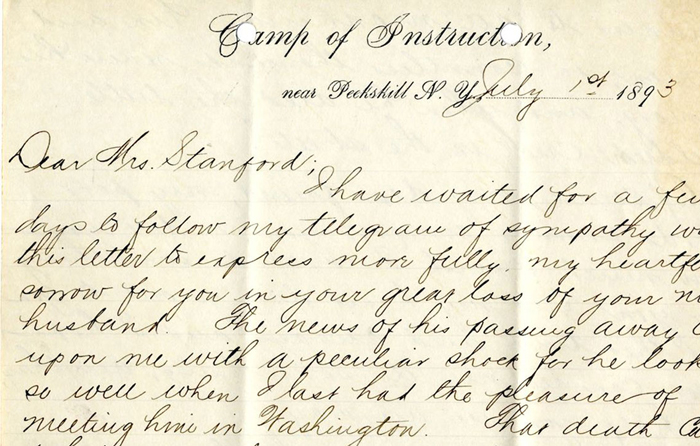 Camp of Instruction,
near Peekskill N. Y. July 1st 1893
Dear Mrs. Stanford;
I have waited for a few
days to follow my telegram of sympathy
this letter to express more fully, my
sorrow for you in your great loss of your
husband. The news of his passing away
upon me with a peculiar shock for he
so well when I last had the pleasure of
meeting him in Washington. That death